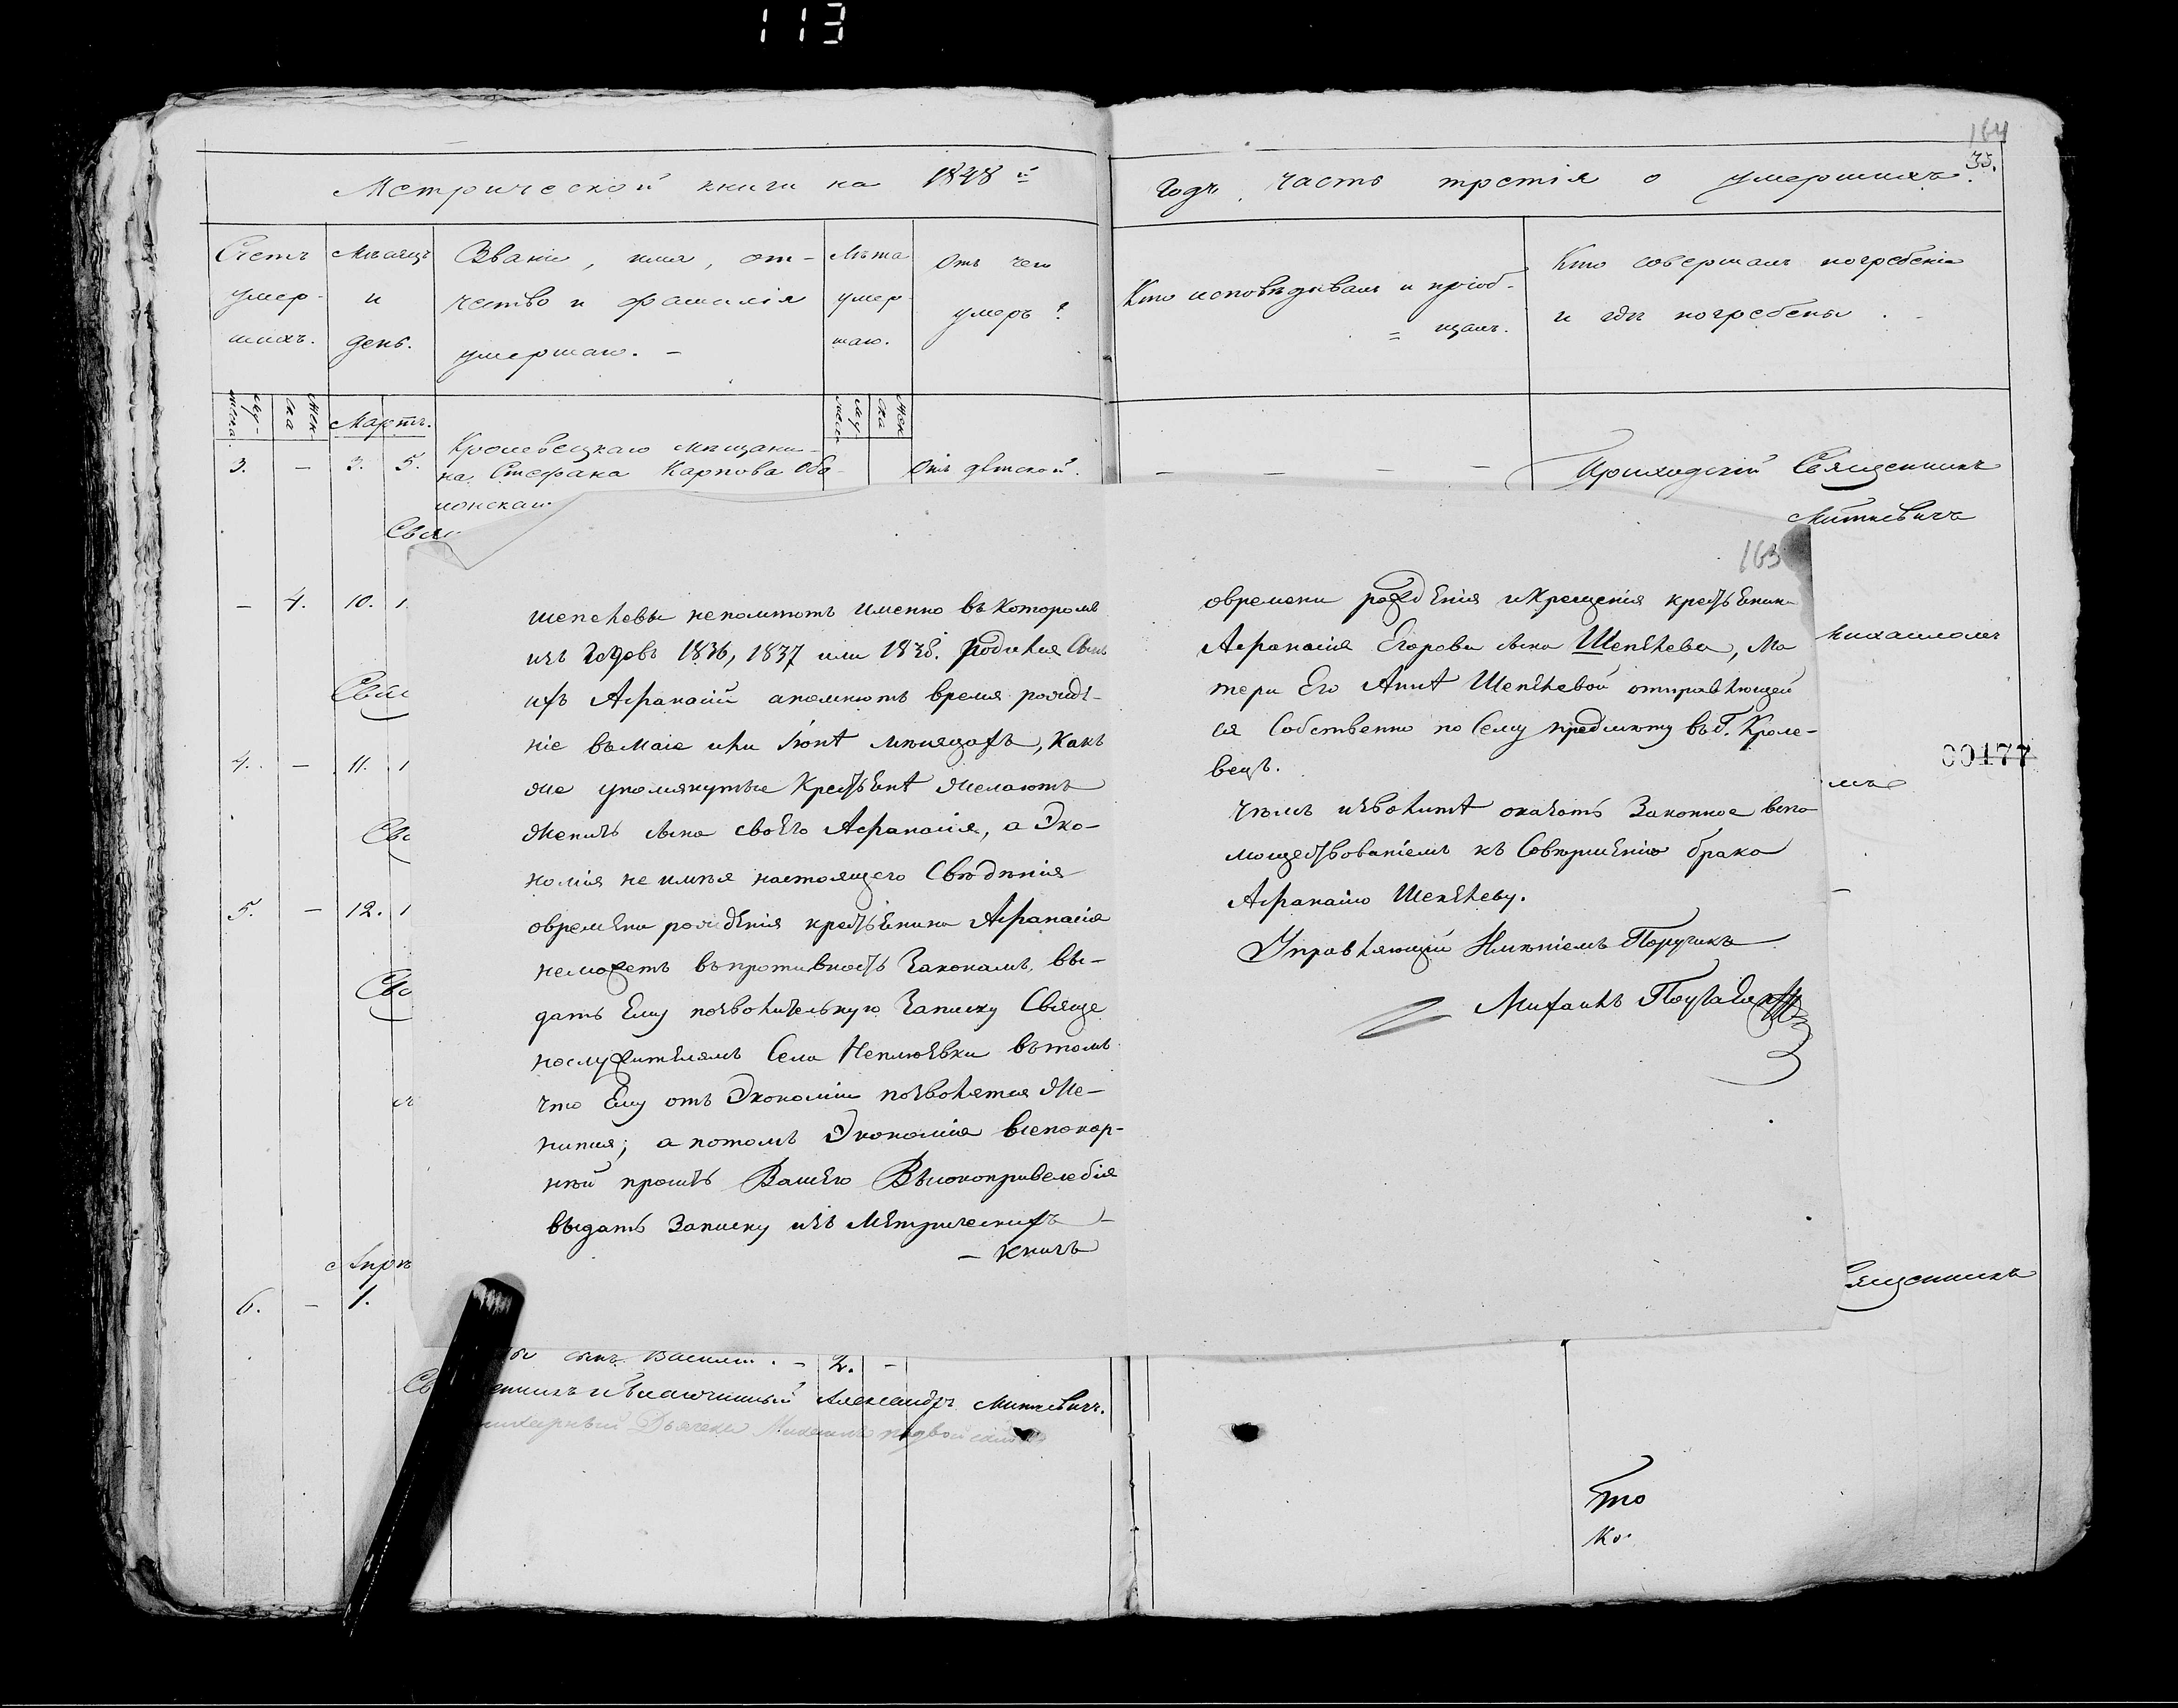 113
164
33.
Метрической книги на 1838й
Годъ, часть третія о умершихъ.
Счетъ умер-
шихъ.
Мѣсяцъ
и
день.
Званіе, имя, от-
чество и фамилія
умершаго. –
Лѣта
умер
шаго.
Отъ чего
умеръ?
Кто исповѣдывалъ и пріоб-
= щалъ.
Кто совершалъ погребеніе
и гдѣ погребены.
Муж-
еска
Жен-
ска
Мартъ.
Му
жеска
Жен
ска
3. – 3. 5.
Кролевецкаго мѣщани-
на Стефана Карпова Обо-
лонскаго
Отъ дѣтской.
– – – –
Приходскій Священникъ
Миткевичъ
Свя
– 4. 10. 1.
Михаиломъ
4. – 11. 1
00177
мъ
Сво
5. – 12. 1
Апрѣ
6. – 1.
ященникъ
163
шепелевы непомнютъ именно въ которомъ
изъ Годовъ 1836, 1837 или 1838. родился Сынъ
ихъ Афанасій апомнютъ время рожде-
ніе въ Маіе или Іюнѣ мѣсяцахъ, Какъ
же упомянутые Крестьенѣ Желаютъ
Женить сына своего Афанасія, а Эко-
номія не имѣя настоящего Свѣдѣнія
овремени рожденія крестьенина Афанасія
неможетъ въ противность Законамъ, вы-
дать Ему позволительную Записку Свяще
нослужителямъ Села Неплюевки въ томъ
что Ему отъ Экономіи позволяется Же-
нится; а потомъ Экономія всепокор-
нѣй проситъ Вашего Высокопривелебія
выдать Записку изъ Метрическихъ –
– Книгъ
овремени рожденія и Крещенія крестьенина
Афанасія Егорова сына Шепелева, Ма
тери Его Аннѣ Шепелевой отправляющей
ся Собственно по Сему предмюту въ Г. Кроле-
вецъ.
Чѣмъ изволитѣ оказать Законное вспо
моществованіемъ къ Совершенію брака
Афанасію Шепелеву.
Управляющій Имѣніемъ Поручикъ
Михаилъ
сынъ Василій. – 2. –
Священникъ и Благочинный Александръ Миткевичъ.
Дьячекъ Михаилъ